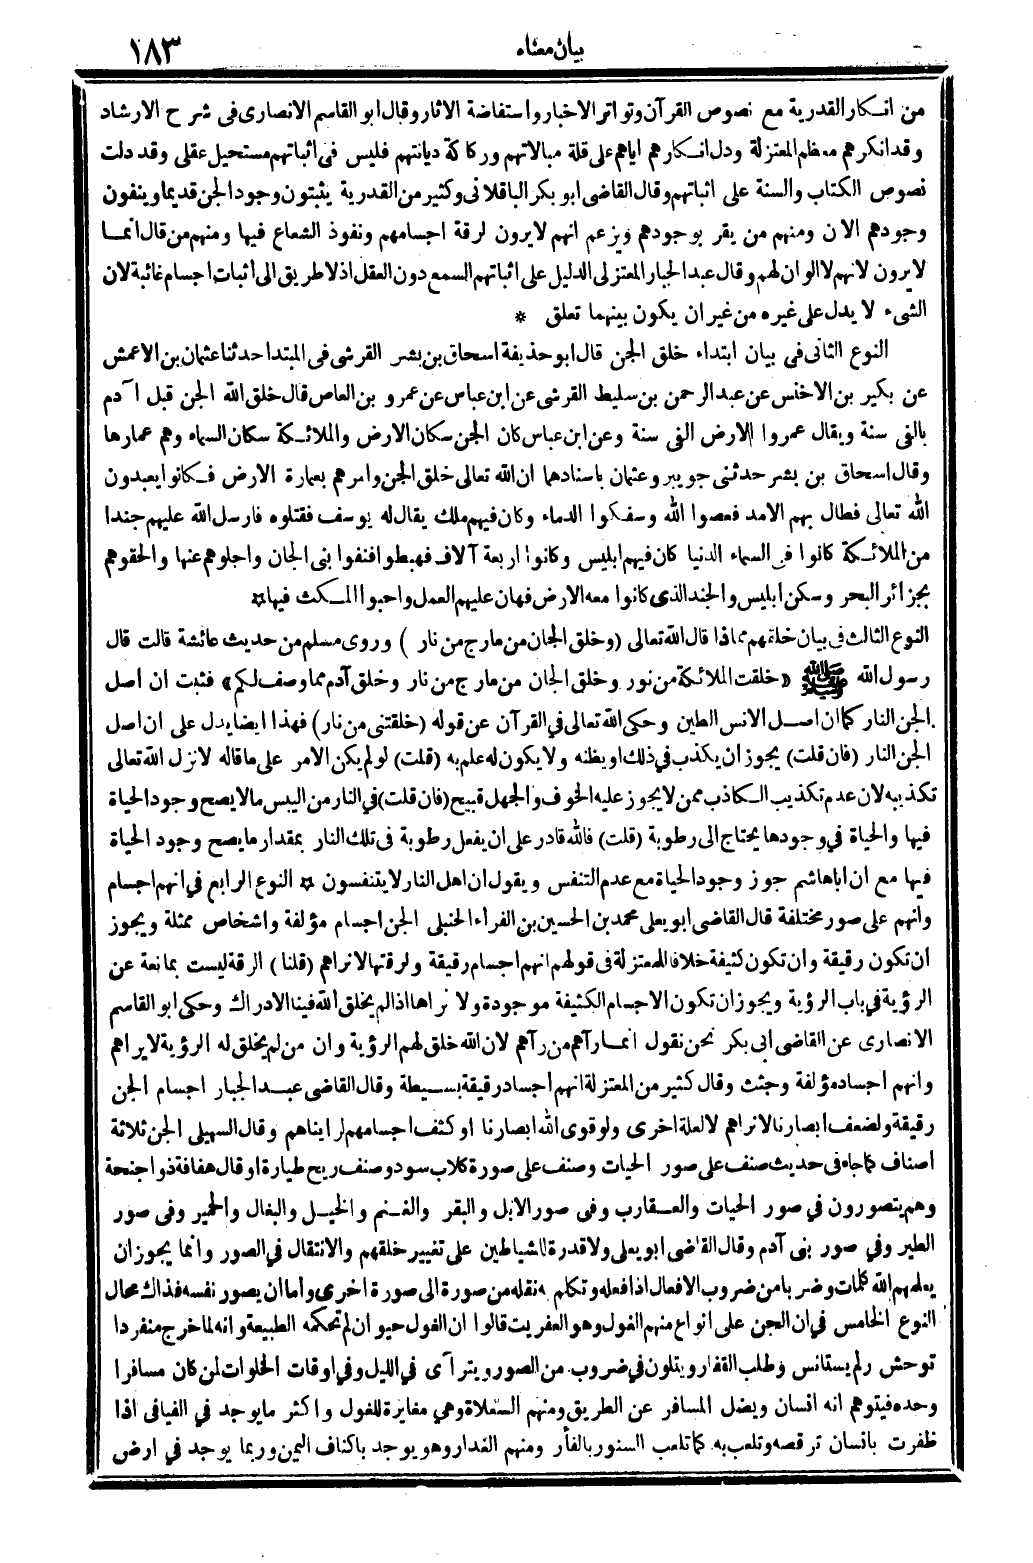 بيان معناه ١٨٣
من انكار القدرية مع نصوص القرآن وتواتر الاخبار واستفاضة الاثار وقال ابو القاسم الانصارى فى شرح الارشاد
وقد انكرهم معظم المعتزلة ودل انكارهم اياهم على قلة مبالاتهم وركاكة ديانتهم فليس فى اثباتهم مستحيل عقلى وقد دلت
نصوص الكتاب والسنة على اثباتهم وقال القاضى ابو بكر الباقلانى وكثير من القدرية يثبتون وجود الجن قديما وينفون
وجودهم الان ومنهم من يقر بوجودهم ويزعم انهم لا يرون لرقة اجسامهم ونفوذ الشعاع فيها ومنهم من قال انما
لا يرون لانهم لا الوان لهم وقال عبد الجبار المعتزلى الدليل على اثباتهم السمع دون العقل اذ لا طريق الى أثبات اجسام غائبة لان
الشىء لا يدل على غيره من غير ان يكون بينهما تعلق *
النوع الثانى فى بيان ابتداء خلق الجن قال ابو حذيفة اسحاق بن بشر القرشى فى المبتدا حدثنا عثمان بن الاعمش
عن بكير بن الاخنس عن عبد الرحمن بن سليط القرشى عن ابن عباس عن عمرو بن العاص قال خلق الله الجن قبل آدم
بالفى سنة ويقال عمروا الارض الفى سنة وعن ابن عباس كان الجن سكان الارض والملائكة سكان السماء وهم عمارها
وقال اسحاق بن بشر حدثنى جويبر وعثمان باسنادهما ان الله تعالى خلق الجن وامرهم بعمارة الارض فكانوا يعبدون
الله تعالى فطال بهم الامد فعصوا الله وسفكوا الدماء وكان فيهم ملك يقال له يوسف فقتلوه فارسل الله عليهم جندا
من الملائكة كانوا فى السماء الدنيا كان فيهم ابليس وكانوا اربعة آلاف فهبطوا فنفوا بنى الجان واجلوهم عنها والحقوهم
بجزائر البحر وسكن ابليس والجند الذى كانوا معه الارض فهان عليهم العمل واحبوا المكث فيها *
النوع الثالث فى بيان خلقهم مماذا قال الله تعالى (وخلق الجان من مارج من نار) وروى مسلم من حديث عائشة قالت قال
رسول الله ﷺ «خلقت الملائكة من نور وخلق الجان من مارج من نار وخلق آدم مما وصف لكم» فثبت ان اصل
الجن النار كما ان اصل الانس الطين وحكى الله تعالى في القرآن عن قوله (خلقتنى من نار) فهذا ايضا يدل على ان اصل
الجن النار (فان قلت) يجوز أن يكذب في ذلك او يظنه ولا يكون له علم به (قلت) لو لم يكن الامر على ما قاله لانزل الله تعالى
تكذيبه لان عدم تكذيب الكاذب ممن لا يجوز عليه الخوف والجهل قبيح (فان قلت) في النار من اليبس ما لا يصح وجود الحياة
فيها والحياة في وجودها يحتاج الى رطوبة (قلت) فالله قادر على ان يفعل رطوبة فى تلك النار بمقدار ما يصح وجود الحياة
فيها مع ان اباهاشم جوز وجود الحياة مع عدم التنفس ويقول ان اهل النار لا يتنفسون * النوع الرابع في انهم اجسام
وانهم على صور مختلفة قال القاضى ابو يعلى محمد بن الحسين بن الفراء الحنبلى الجن اجسام مؤلفة واشخاص ممثلة ويجوز
ان تكون رقيقة وان تكون كثيفة خلافا للمعتزلة فى قولهم انهم اجسام رقيقة ولرقتها لا نراهم (قلنا) الرقة ليست بمانعة عن
الرؤية في باب الرؤية ويجوز ان تكون الاجسام الكثيفة موجودة ولا نراها اذا لم يخلق الله فينا الادراك وحكى ابو القاسم
الانصارى عن القاضى ابى بكر نحن نقول انما رآهم من رآهم لان الله خلق لهم الرؤية وان من لم يخلق له الرؤية لا يراهم
وانهم اجساد مؤلفة وجثث وقال كثير من المعتزلة انهم اجساد رقيقة بسيطة وقال القاضى عبد الجبار اجسام الجن
رقيقة ولضعف ابصارنا لا نراهم لا لعلة اخرى ولو قوى الله ابصارنا او كثف اجسامهم لرايناهم وقال السهيلى الجن ثلاثة
اصناف كما جاء فى حديث صنف على صور الحيات وصنف على صورة كلاب سود وصنف ريح طيارة او قال هفافة ذو اجنحة
وهم يتصورون في صور الحيات والعقارب وفى صور الابل والبقر والغنم والخيل والبغال والحمير وفى صور
الطير وفي صور بنى آدم وقال القاضى ابو يعلى ولا قدرة للشياطين على تغيير خلقهم والانتقال في الصور وانما يجوز ان
يعلمهم الله كلمات وضربا من ضروب الافعال اذا فعله وتكلم به نقله من صورة الى صورة اخرى واما ان يصور نفسه فذاك محال
النوع الخامس في ان الجن على انواع منهم الغول وهو العفريت قالوا ان الغول حيوان لم تحكمه الطبيعة وانه لما خرج منفردا
توحش ولم يستانس وطلب القفار ويتلون في ضروب من الصور ويتراآى في الليل وفي اوقات الخلوات لمن كان مسافرا
وحده فيتوهم انه انسان ويضل المسافر عن الطريق ومنهم السعلاة وهي مغايرة للغول واكثر ما يوجد في الفيافى اذا
ظفرت بانسان ترقصه وتلعب به كما تلعب السنور بالفأر ومنهم الغدار وهو يوجد باكناف اليمن وربما يوجد في ارض